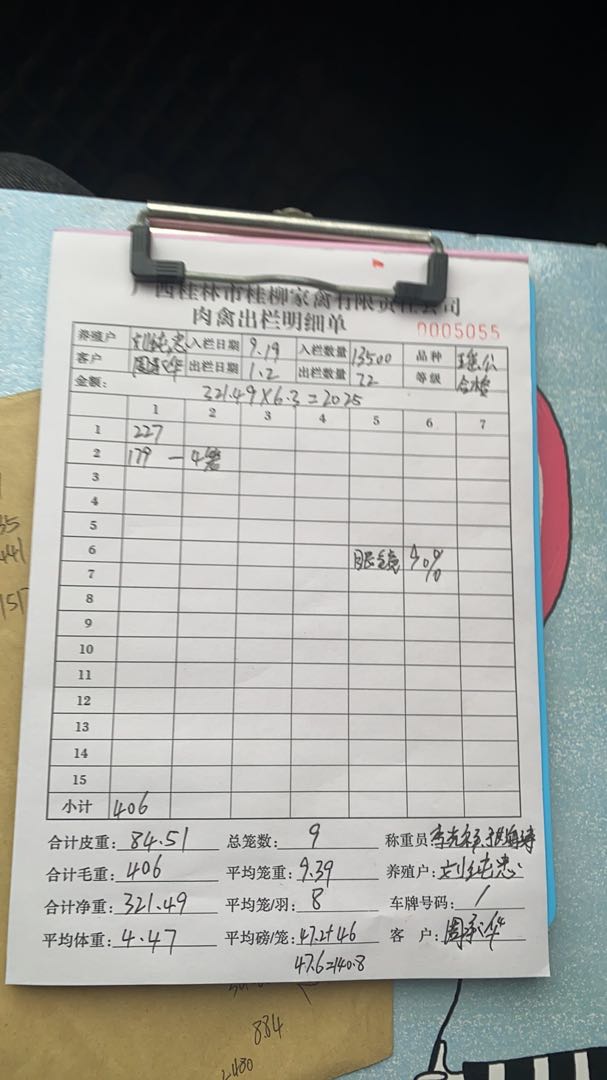 广西桂林市桂柳家禽有限责任公司
肉禽出栏明细单
0005055
养殖户 刘纯忠 入栏日期 9.19 入栏数量 13500 品种 瑶公
客户 周承华 出栏日期 1.2 出栏数量 72 等级 合格
金额: 321.49×6.3=2025
1 2 3 4 5 6 7
1 227
2 179 — 4笼
3
4
5
6 眼镜 40%
7
8
9
10
11
12
13
14
15
小计 406
合计皮重: 84.51 总笼数: 9 称重员:
合计毛重: 406 平均笼重: 9.39 养殖户: 刘纯忠
合计净重: 321.49 平均笼/羽: 8 车牌号码: /
平均体重: 4.47 平均磅/笼: 47.2+46 客 户: 周承华
47.6=140.8
35
441
1517
884
2480